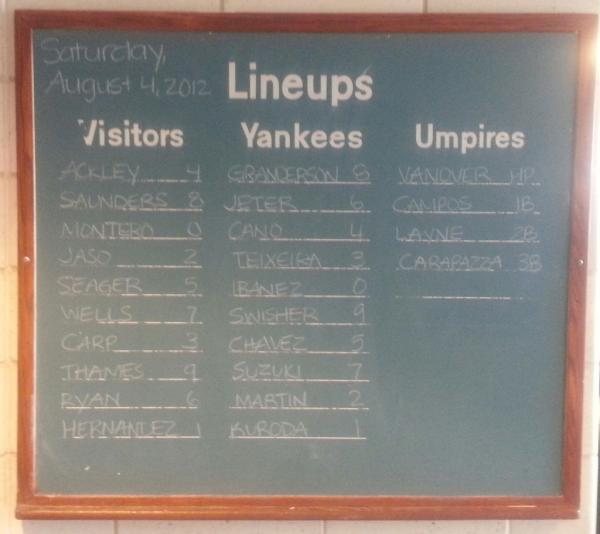 Saturday,
August 4, 2012
Lineups
Visitors
ACKLEY 4
SAUNDERS 8
MONTERO 0
JASO 2
SEAGER 5
WELLS 7
CARP 3
THAMES 9
RYAN 6
HERNANDEZ 1
Yankees
GRANDERSON 8
JETER 6
CANO 4
TEIXEIRA 3
IBANEZ 0
SWISHER 9
CHAVEZ 5
SUZUKI 7
MARTIN 2
KURODA 1
Umpires
VANOVER HP
CAMPOS 1B
LAYNE 2B
CARAPAZZA 3B